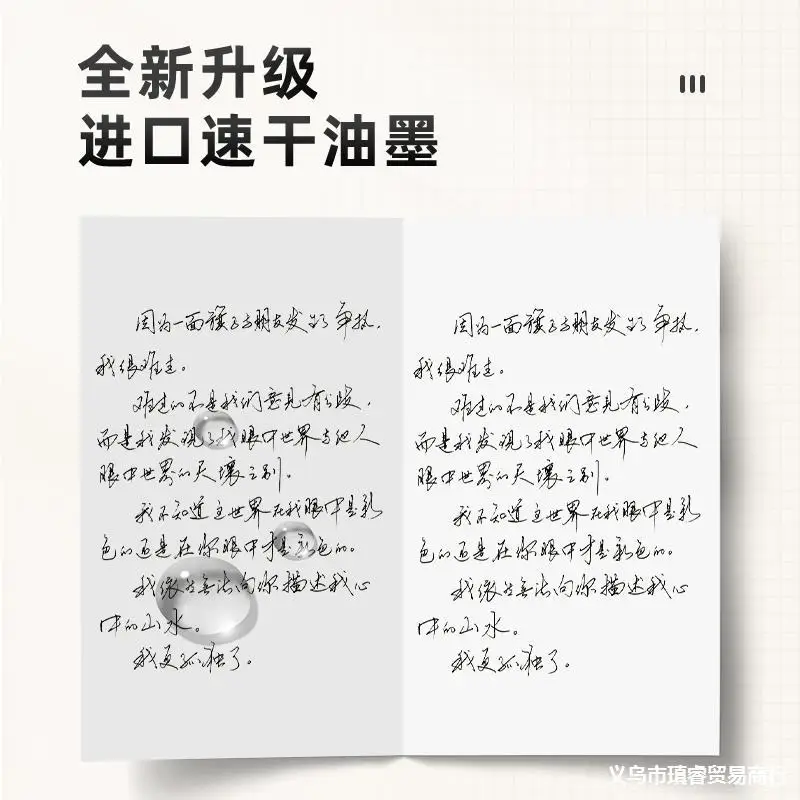 全新升级
进口速干油墨
因为一面旗子与朋友发生了争执，
我很难过。
难过的不是我们意见有分歧，
而是我发现了我眼中世界与他人
眼中世界的天壤之别。
我不知道这世界在我眼中是彩
色的还是在你眼中才是彩色的。
我像是无法向你描述我心
中的山水。
我更孤独了。
因为一面旗子与朋友发生了争执，
我很难过。
难过的不是我们意见有分歧，
而是我发现了我眼中世界与他人
眼中世界的天壤之别。
我不知道这世界在我眼中是彩
色的还是在你眼中才是彩色的。
我像是无法向你描述我心
中的山水。
我更孤独了。
义乌市瑱睿贸易商行